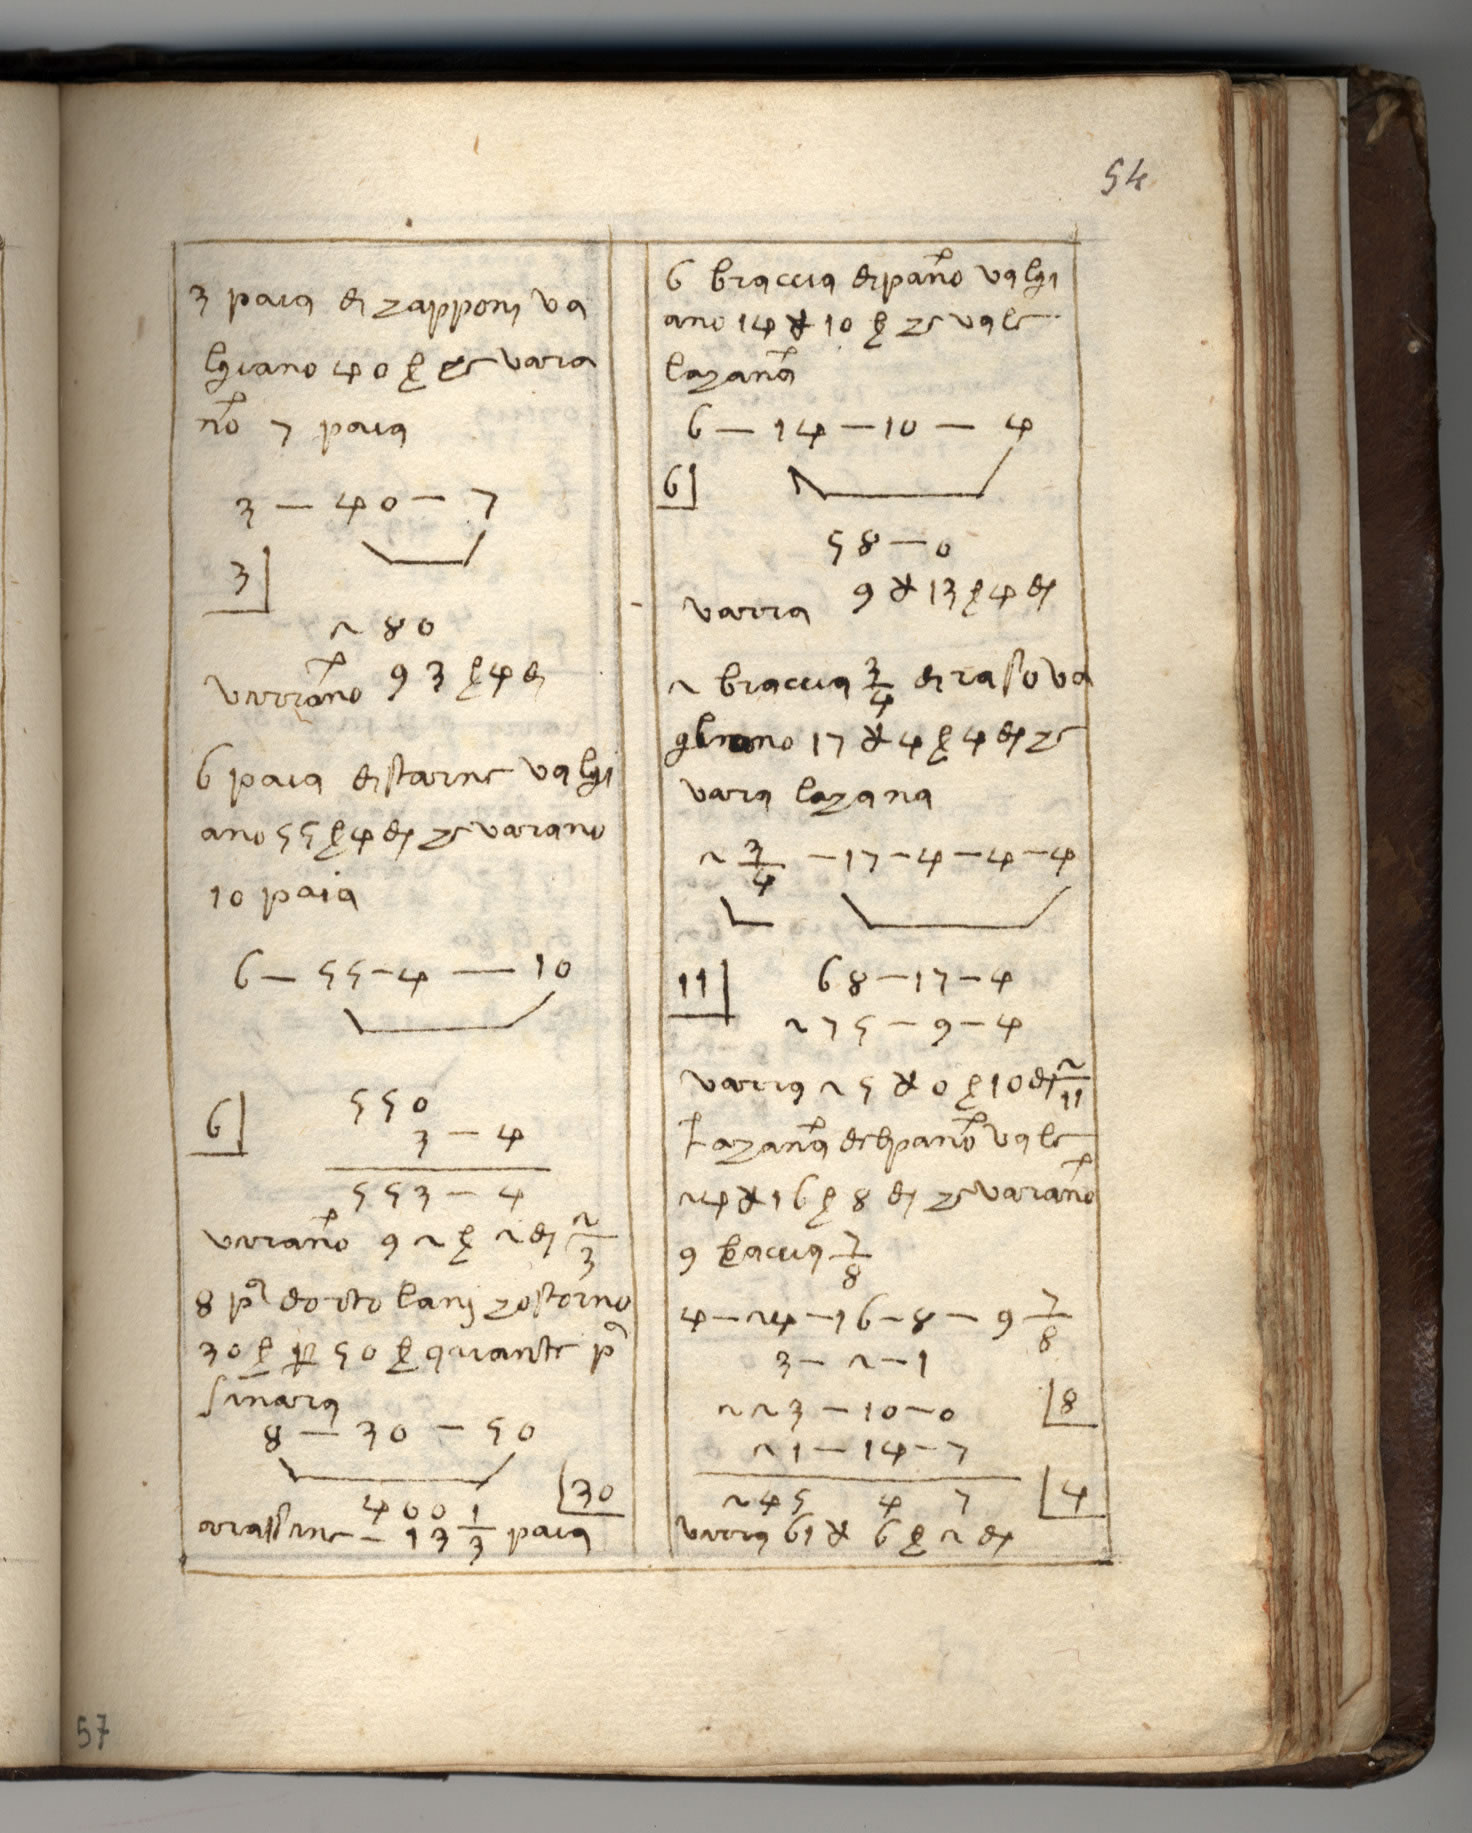 54
3 paia di zapponi va
lgiano 40 ꝭ che vara
no 7 paia
3 — 40 — 7
3
280
varrano 93 ꝭ 4 di
6 paia di starne valgi
ano 55 ꝭ 4 di che varano
10 paia
6 — 55 — 4 — 10
6
550
3 — 4
553 — 4
varano 92 ꝭ 2 di 2/3
8 pa do
30 ꝭ per 50 ꝭ quante pa
sinara
8 — 30 — 50
400
30
arassine — 13 1/3 paia
6 braccia di pano valgi
ano 14 ₰ 10 ꝭ che vale
lazana
6 — 14 — 10 — 4
6
58 — 0
varra 9 ₰ 13 ꝭ 4 di
2 braccia 3/4 di raso va
gliano 17 ₰ 4 ꝭ 4 di che
vara lazana
2 3/4 — 17 — 4 — 4 — 4
11
68 — 17 — 4
275 — 9 — 4
varra 25 ₰ 0 ꝭ 10 di 2/11
Lazana del pano vale
24 ₰ 16 ꝭ 8 di che varano
9 bracia 7/8
4 — 24 — 16 — 8 — 9 7/8
3 — 2 — 1
223 — 10 — 0
8
21 — 14 — 7
245 4 7
4
varra 61 ₰ 6 ꝭ 2 di
57